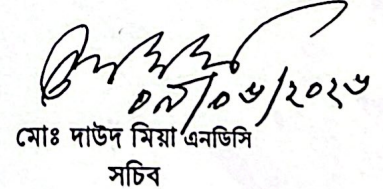 ০৯/০৬/২০২৬
মোঃ দাউদ মিয়া এনডিসি
সচিব